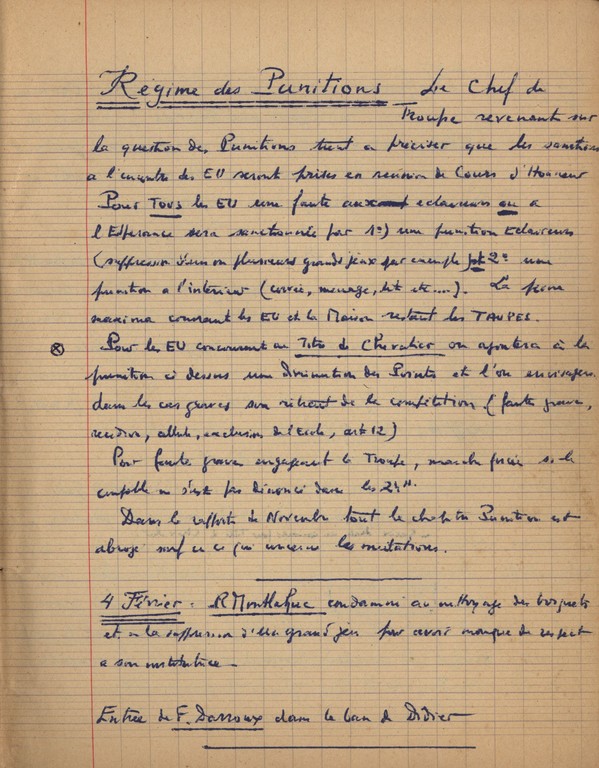 Régime des Punitions _ Le Chef de
Troupe revenant sur
la question des Punitions tient a préciser que les sanctions
a l'encontre des EU seront prises en reunion de Cours d'Honneur
Pour Tous les EU une faute aux eclaireurs ou a
l'Esperance sera sanctionnée par 1°) une punition Eclaireurs
(suppression d'un ou plusieurs grands jeux par exemple) et 2° une
punition a l'interieur (corvée, menage, lit etc....). La peine
maxima concernant les EU et la Maison restant les TAUPES.
⊗ Pour les EU concourant au Titre de Chevalier on ajoutera à la
punition ci dessus une diminution des Points et l'on envisagera
dans les cas graves son retrait de la compétition (faute grave,
recidive, exclusion de l'Ecole, art 12)
Pour faute grave engageant la Troupe, marche forcée si le
coupable ne s'est pas dénoncé dans les 24H.
Dans le rapport de Novembre tout le chapitre Punition est
abrogé sauf en ce qui concerne les
4 Février : R Montlahuc condamné au nettoyage des bosquets
et a la suppression d'un grand jeu pour avoir manqué de respect
a son institutrice _
Entrée de F. Darroux dans le ban de Didier